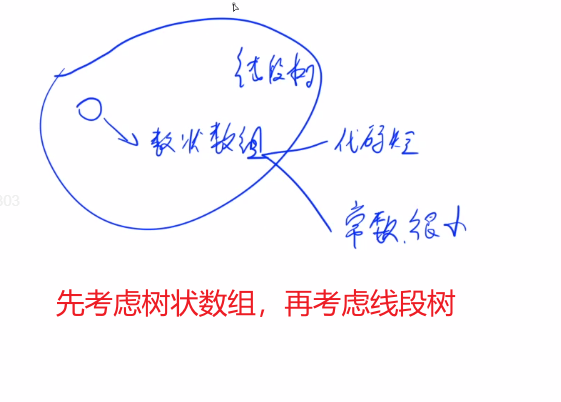 线段树
数状数组
代码短
常数很小
先考虑树状数组，再考虑线段树